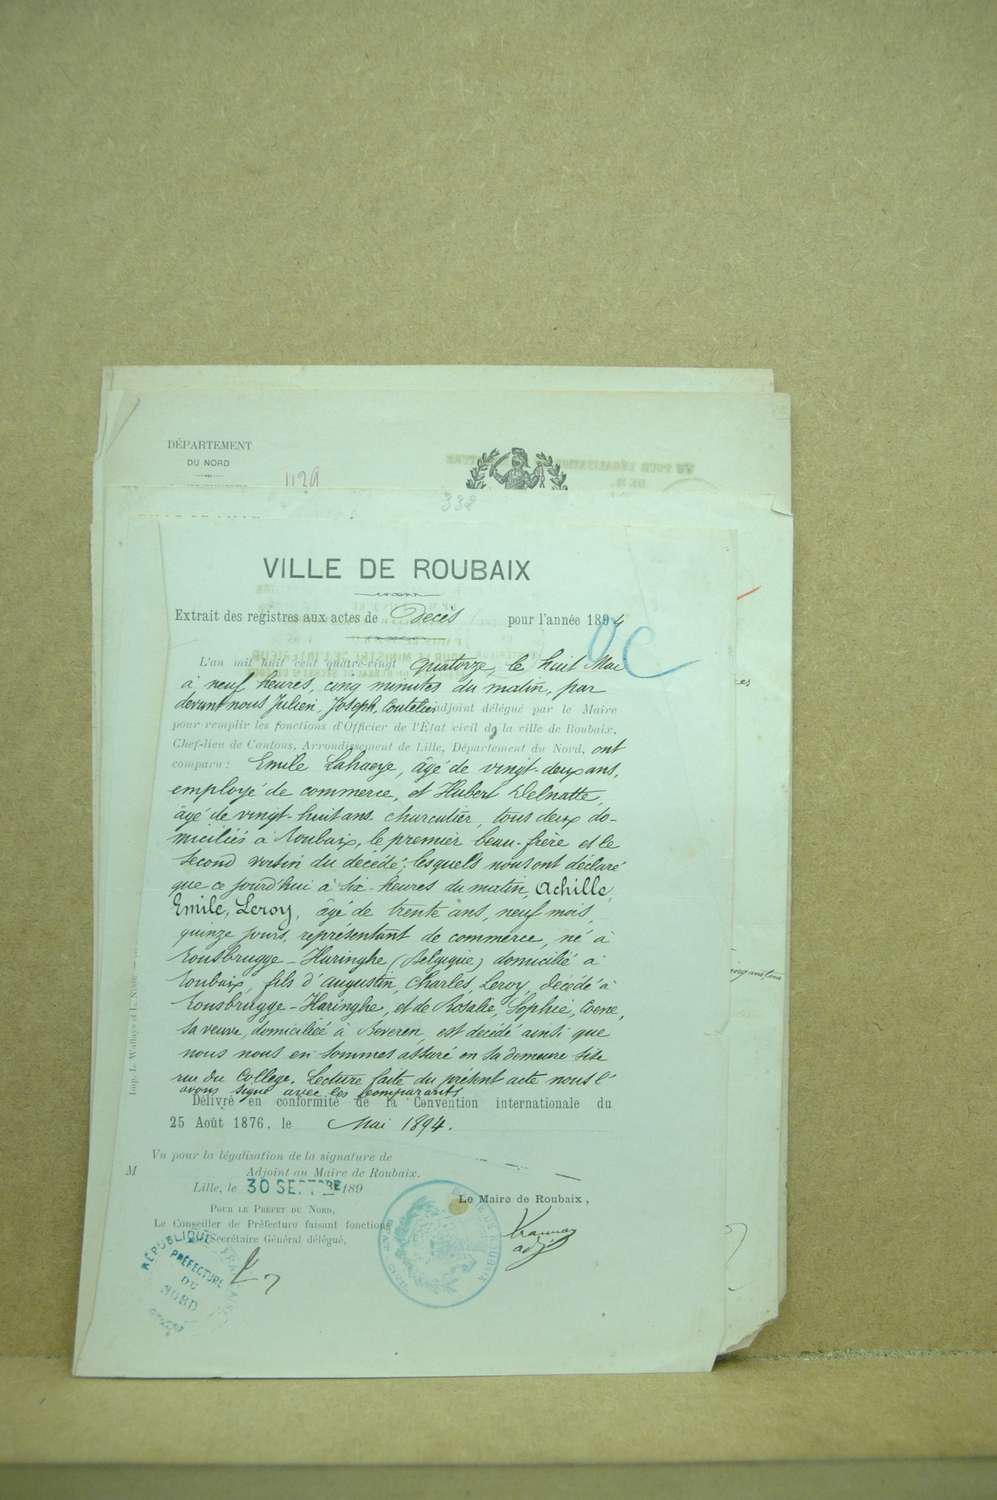 DÉPARTEMENT
DU NORD
1129
332
VILLE DE ROUBAIX
Extrait des registres aux actes de Décès pour l'année 1894
L'an mil huit cent quatre-vingt quatorze, le huit Mai
à neuf heures, cinq minutes du matin, par
devant nous Julien, Joseph, Coutelier adjoint délégué par le Maire
pour remplir les fonctions d'Officier de l'État civil de la ville de Roubaix,
Chef-lieu de Cantons, Arrondissement de Lille, Département du Nord, ont
comparu : Emile Lahaeye, âgé de vingt-deux ans,
employé de commerce, et Hubert Delnatte,
âgé de vingt-huit ans charcutier, tous deux do-
miciliés à Roubaix, le premier beau-frère et le
second voisin du décédé ; lesquels nous ont déclaré
que ce jourd'hui à six heures du matin, Achille,
Emile, Leroy, âgé de trente ans, neuf mois,
quinze jours, représentant de commerce, né à
Rousbrugge-Haringhe (Belgique) domicilié à
Roubaix, fils d'Augustin, Charles, Leroy, décédé à
Rousbrugge-Haringhe, et de Rosalie, Sophie, Coene,
sa veuve, domiciliée à Beveren, est décédé ainsi que
nous nous en sommes assuré en sa demeure sise
rue du Collège. Lecture faite du présent acte nous l'
avons signé avec les comparants
Délivré en conformité de la Convention internationale du
25 Août 1876, le Mai 1894.
Vu pour la légalisation de la signature de
M
Adjoint au Maire de Roubaix.
Lille, le 30 SEPTBRE 189
POUR LE PRÉFET DU NORD,
Le Conseiller de Préfecture faisant fonctions
Secrétaire Général délégué,
Le Maire de Roubaix,
adj
RÉPUBLIQUE FRANÇAISE
PRÉFECTURE
DU
NORD